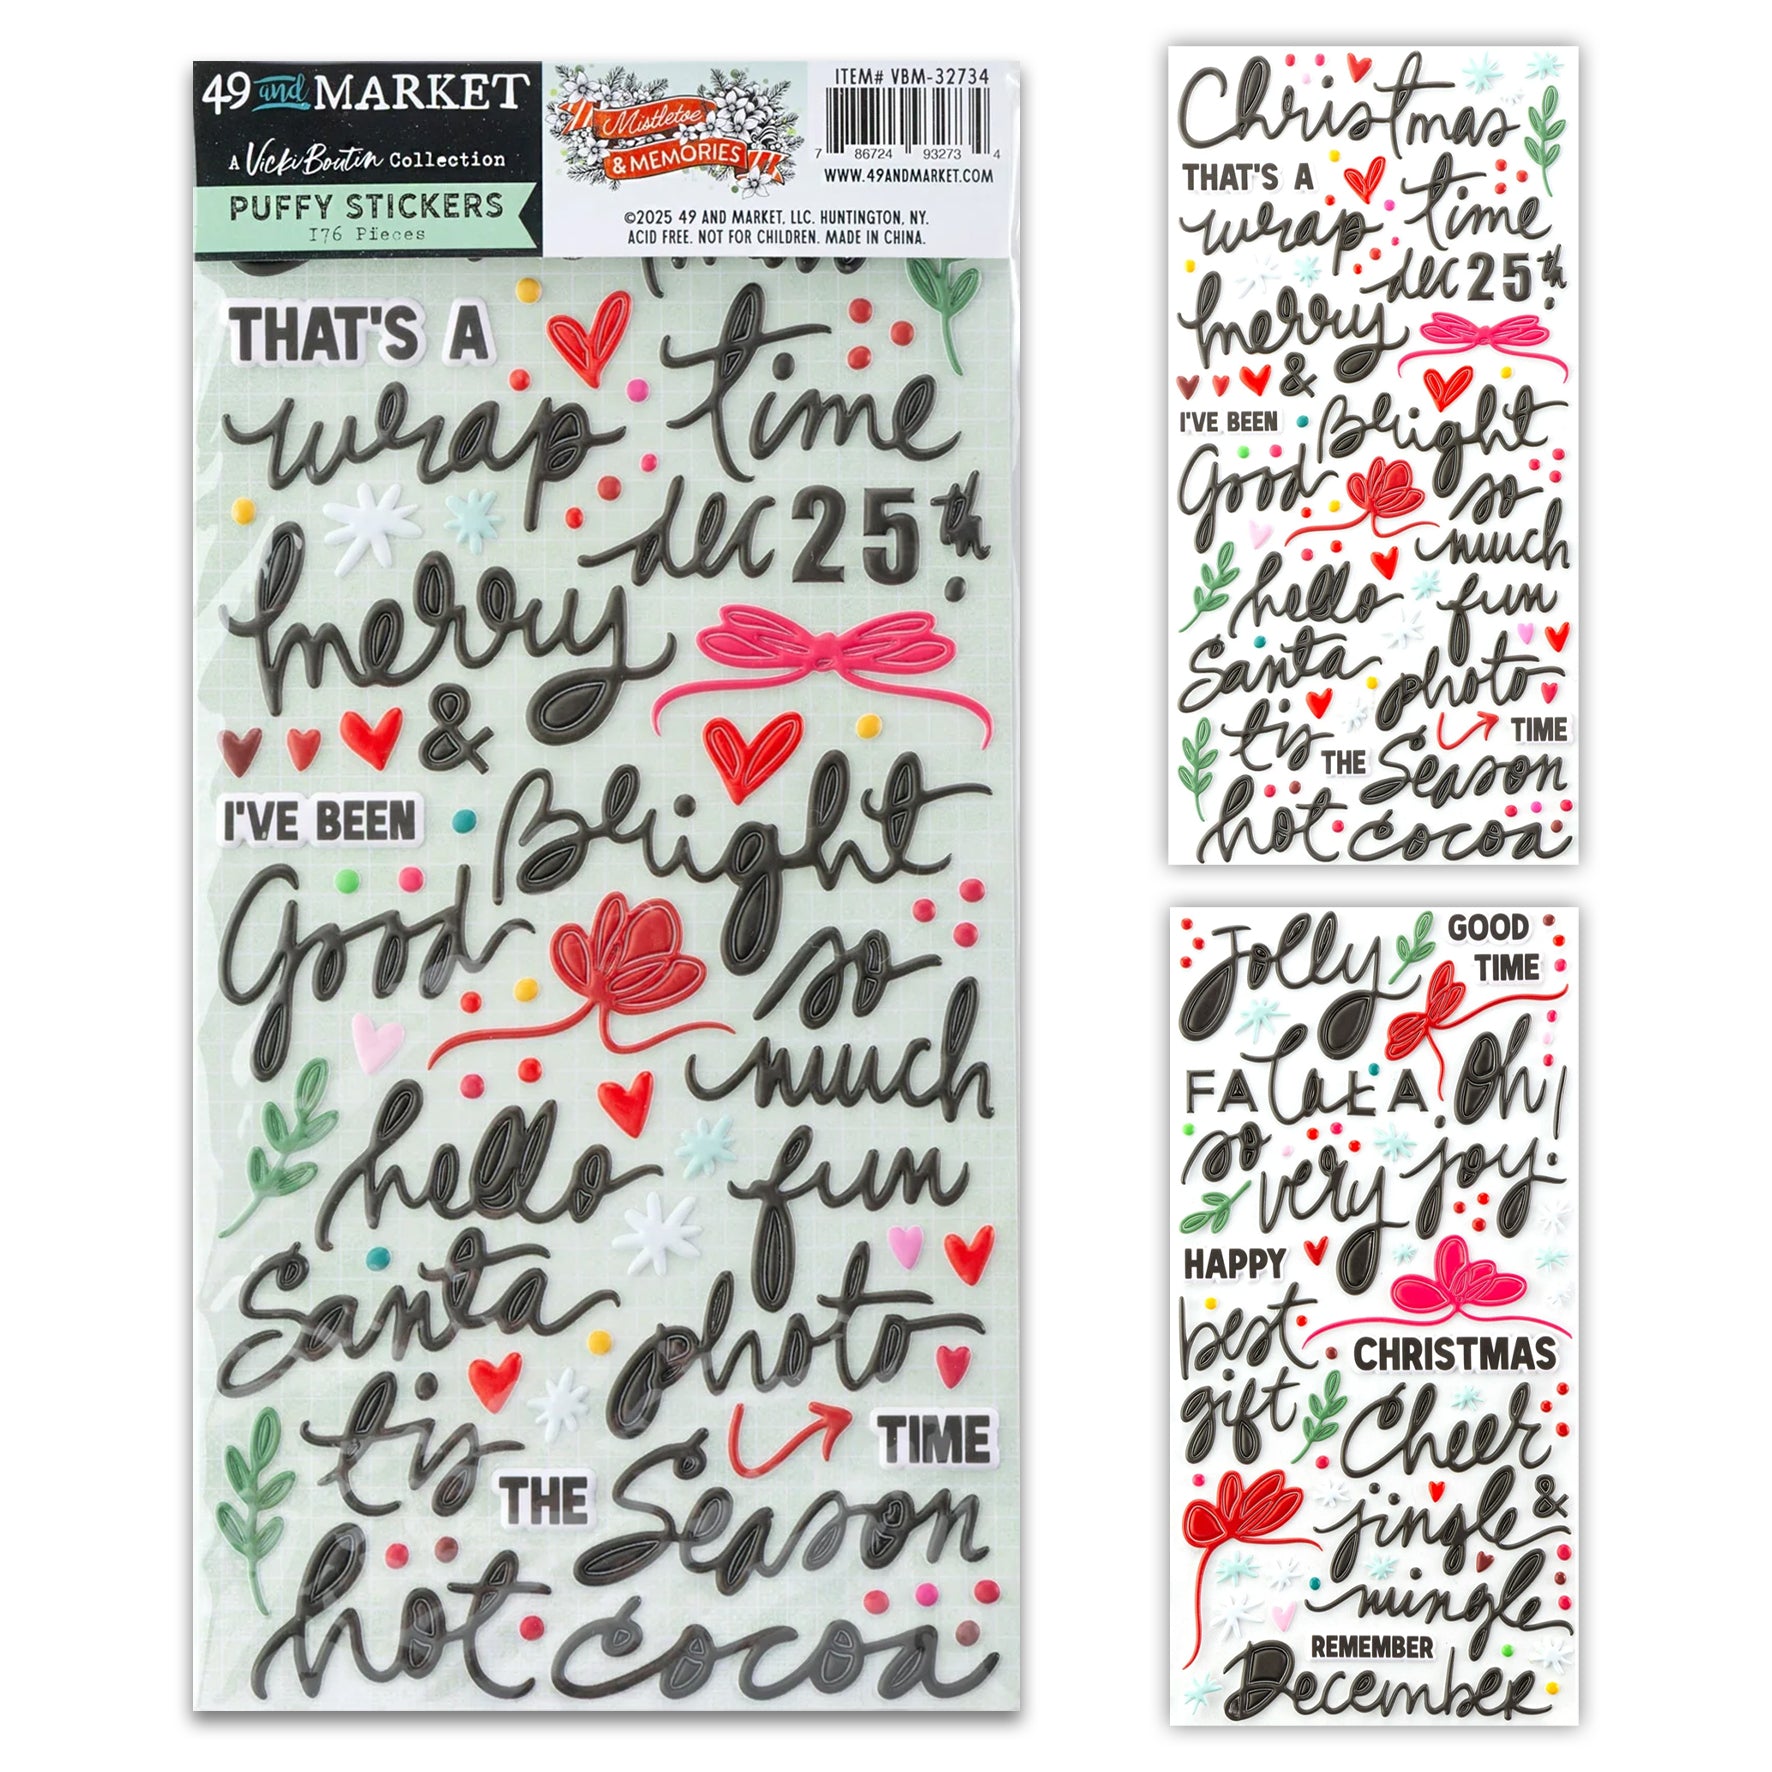 49 and MARKET
A Vicki Boutin Collection
PUFFY STICKERS
176 Pieces
Mistletoe
& MEMORIES
ITEM# VBM-32734
7 86724 93273 4
WWW.49ANDMARKET.COM
©2025 49 AND MARKET, LLC. HUNTINGTON, NY.
ACID FREE. NOT FOR CHILDREN. MADE IN CHINA.
THAT'S A
time
wrap
dec 25th.
merry
&
Bright
I'VE BEEN
Good
so
much
hello
fun
Santa
photo
tis
TIME
THE
Season
hot cocoa
Christmas
THAT'S A
time
wrap
dec 25th.
merry
&
I'VE BEEN
Bright
Good
so
much
hello
fun
Santa
photo
tis
TIME
THE
Season
hot cocoa
Jolly
GOOD
TIME
FA la LA
Oh!
so
very
joy.
HAPPY
best
CHRISTMAS
gift
Cheer
jingle &
mingle
REMEMBER
December